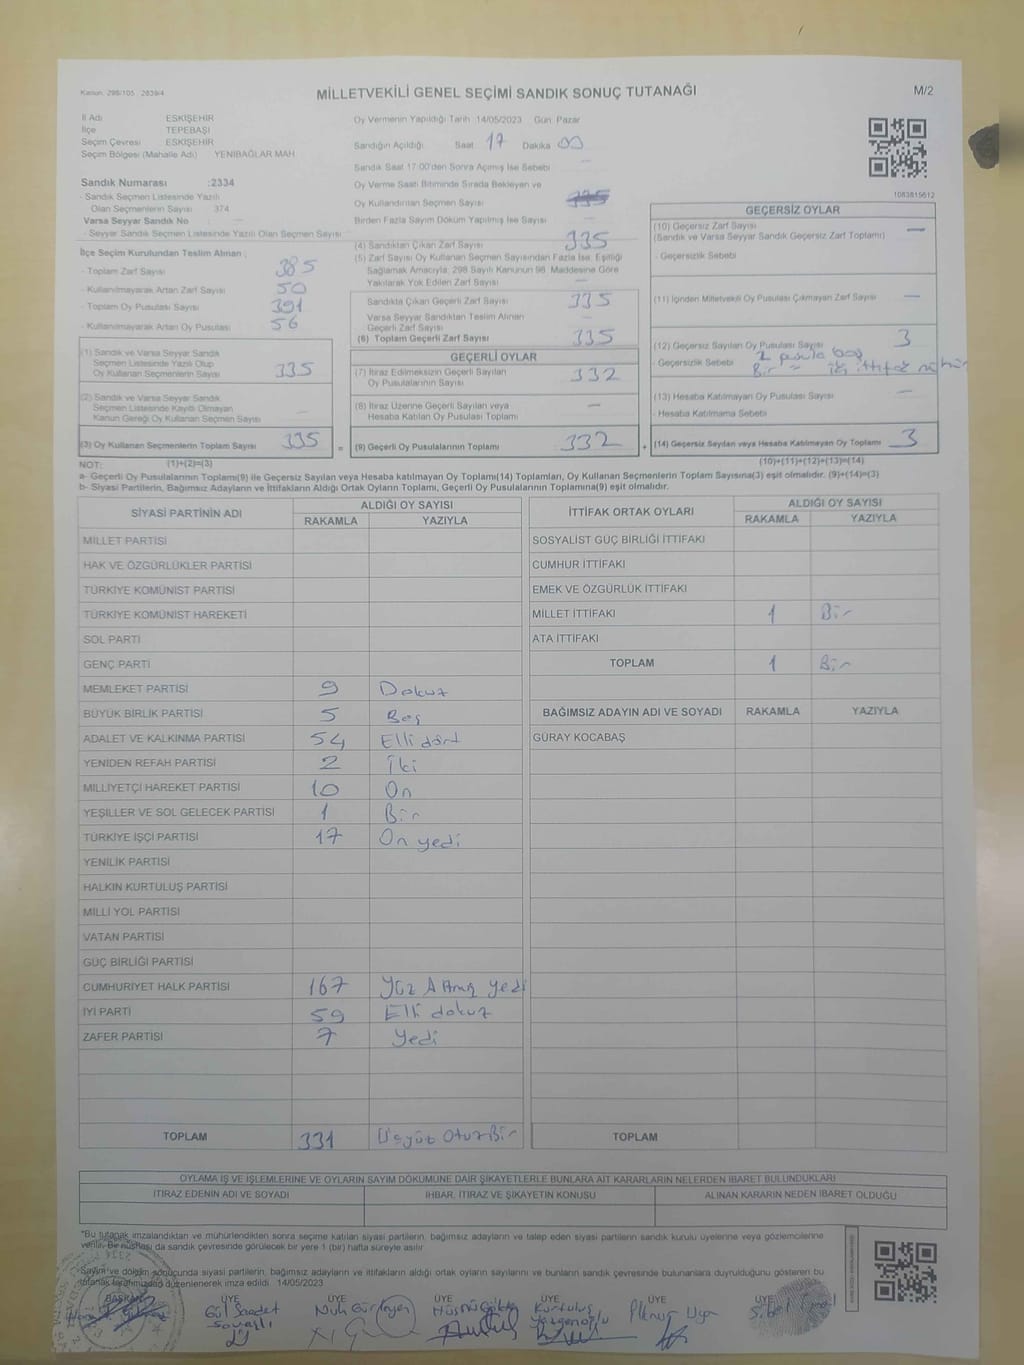 Kanun: 298/105, 2839/4
MİLLETVEKİLİ GENEL SEÇİMİ SANDIK SONUÇ TUTANAĞI
M/2
İl Adı ESKİŞEHİR
İlçe TEPEBAŞI
Seçim Çevresi ESKİŞEHİR
Seçim Bölgesi (Mahalle Adı) YENİBAĞLAR MAH.
Sandık Numarası :2334
- Sandık Seçmen Listesinde Yazılı
Olan Seçmenlerin Sayısı 374
Varsa Seyyar Sandık No
- Seyyar Sandık Seçmen Listesinde Yazılı Olan Seçmen Sayısı
İlçe Seçim Kurulundan Teslim Alınan ;
- Toplam Zarf Sayısı 385
- Kullanılmayarak Artan Zarf Sayısı 50
- Toplam Oy Pusulası Sayısı 391
- Kullanılmayarak Artan Oy Pusulası 56
(1) Sandık ve Varsa Seyyar Sandık
Seçmen Listesinde Yazılı Olup
Oy Kullanan Seçmenlerin Sayısı 335
(2) Sandık ve Varsa Seyyar Sandık
Seçmen Listesinde Kayıtlı Olmayan
Kanun Gereği Oy Kullanan Seçmen Sayısı —
(3) Oy Kullanan Seçmenlerin Toplam Sayısı 335 =
Oy Vermenin Yapıldığı Tarih :14/05/2023 Gün: Pazar
Sandığın Açıldığı: Saat: 17 Dakika 00
Sandık Saat 17:00'den Sonra Açılmış İse Sebebi —
Oy Verme Saati Bitiminde Sırada Bekleyen ve
Oy Kullandırılan Seçmen Sayısı 335
Birden Fazla Sayım Döküm Yapılmış İse Sayısı —
(4) Sandıktan Çıkan Zarf Sayısı 335
(5) Zarf Sayısı Oy Kullanan Seçmen Sayısından Fazla İse, Eşitliği
Sağlamak Amacıyla; 298 Sayılı Kanunun 98. Maddesine Göre
Yakılarak Yok Edilen Zarf Sayısı —
Sandıkta Çıkan Geçerli Zarf Sayısı 335
Varsa Seyyar Sandıktan Teslim Alınan
Geçerli Zarf Sayısı —
(6) Toplam Geçerli Zarf Sayısı 335
GEÇERLİ OYLAR
(7) İtiraz Edilmeksizin Geçerli Sayılan
Oy Pusulalarının Sayısı 332
(8) İtiraz Üzerine Geçerli Sayılan veya
Hesaba Katılan Oy Pusulası Toplamı —
(9) Geçerli Oy Pusulalarının Toplamı 332 +
1083815612
GEÇERSİZ OYLAR
(10) Geçersiz Zarf Sayısı —
(Sandık ve Varsa Seyyar Sandık Geçersiz Zarf Toplamı)
- Geçersizlik Sebebi
(11) İçinden Milletvekili Oy Pusulası Çıkmayan Zarf Sayısı —
(12) Geçersiz Sayılan Oy Pusulası Sayısı 3
- Geçersizlik Sebebi 2 pusula boş
Bir " iki ittifak mühür
(13) Hesaba Katılmayan Oy Pusulası Sayısı —
- Hesaba Katılmama Sebebi
(14) Geçersiz Sayılan veya Hesaba Katılmayan Oy Toplamı 3
NOT: (1)+(2)=(3) (10)+(11)+(12)+(13)=(14)
a- Geçerli Oy Pusulalarının Toplamı(9) ile Geçersiz Sayılan veya Hesaba katılmayan Oy Toplamı(14) Toplamları, Oy Kullanan Seçmenlerin Toplam Sayısına(3) eşit olmalıdır. (9)+(14)=(3)
b- Siyasi Partilerin, Bağımsız Adayların ve İttifakların Aldığı Ortak Oyların Toplamı, Geçerli Oy Pusulalarının Toplamına(9) eşit olmalıdır.
SİYASİ PARTİNİN ADI ALDIĞI OY SAYISI
RAKAMLA YAZIYLA
MİLLET PARTİSİ
HAK VE ÖZGÜRLÜKLER PARTİSİ
TÜRKİYE KOMÜNİST PARTİSİ
TÜRKİYE KOMÜNİST HAREKETİ
SOL PARTİ
GENÇ PARTİ
MEMLEKET PARTİSİ 9 Dokuz
BÜYÜK BİRLİK PARTİSİ 5 Beş
ADALET VE KALKINMA PARTİSİ 54 Elli dört
YENİDEN REFAH PARTİSİ 2 İki
MİLLİYETÇİ HAREKET PARTİSİ 10 On
YEŞİLLER VE SOL GELECEK PARTİSİ 1 Bir
TÜRKİYE İŞÇİ PARTİSİ 17 On yedi
YENİLİK PARTİSİ
HALKIN KURTULUŞ PARTİSİ
MİLLİ YOL PARTİSİ
VATAN PARTİSİ
GÜÇ BİRLİĞİ PARTİSİ
CUMHURİYET HALK PARTİSİ 167 Yüz Altmış yedi
İYİ PARTİ 59 Elli dokuz
ZAFER PARTİSİ 7 Yedi
TOPLAM 331 Üçyüz OtuzBir
İTTİFAK ORTAK OYLARI ALDIĞI OY SAYISI
RAKAMLA YAZIYLA
SOSYALİST GÜÇ BİRLİĞİ İTTİFAKI
CUMHUR İTTİFAKI
EMEK VE ÖZGÜRLÜK İTTİFAKI
MİLLET İTTİFAKI 1 Bir
ATA İTTİFAKI
TOPLAM 1 Bir
BAĞIMSIZ ADAYIN ADI VE SOYADI RAKAMLA YAZIYLA
GÜRAY KOCABAŞ
TOPLAM
OYLAMA İŞ VE İŞLEMLERİNE VE OYLARIN SAYIM DÖKÜMÜNE DAİR ŞİKAYETLERLE BUNLARA AİT KARARLARIN NELERDEN İBARET BULUNDUKLARI
İTİRAZ EDENİN ADI VE SOYADI İHBAR, İTİRAZ VE ŞİKAYETİN KONUSU ALINAN KARARIN NEDEN İBARET OLDUĞU
*Bu tutanak imzalandıktan ve mühürlendikten sonra seçime katılan siyasi partilerin, bağımsız adayların ve talep eden siyasi partilerin sandık kurulu üyelerine veya gözlemcilerine
verilir. Bir nüshası da sandık çevresinde görülecek bir yere 1 (bir) hafta süreyle asılır.
Sayım ve döküm sonucunda siyasi partilerin, bağımsız adayların ve ittifakların aldığı ortak oyların sayılarını ve bunların sandık çevresinde bulunanlara duyrulduğunu gösteren bu
tutanak tarafımızdan düzenlenerek imza edildi. 14/05/2023
BAŞKAN ÜYE ÜYE ÜYE ÜYE ÜYE ÜYE
Gül Saadet
Kurtuluş